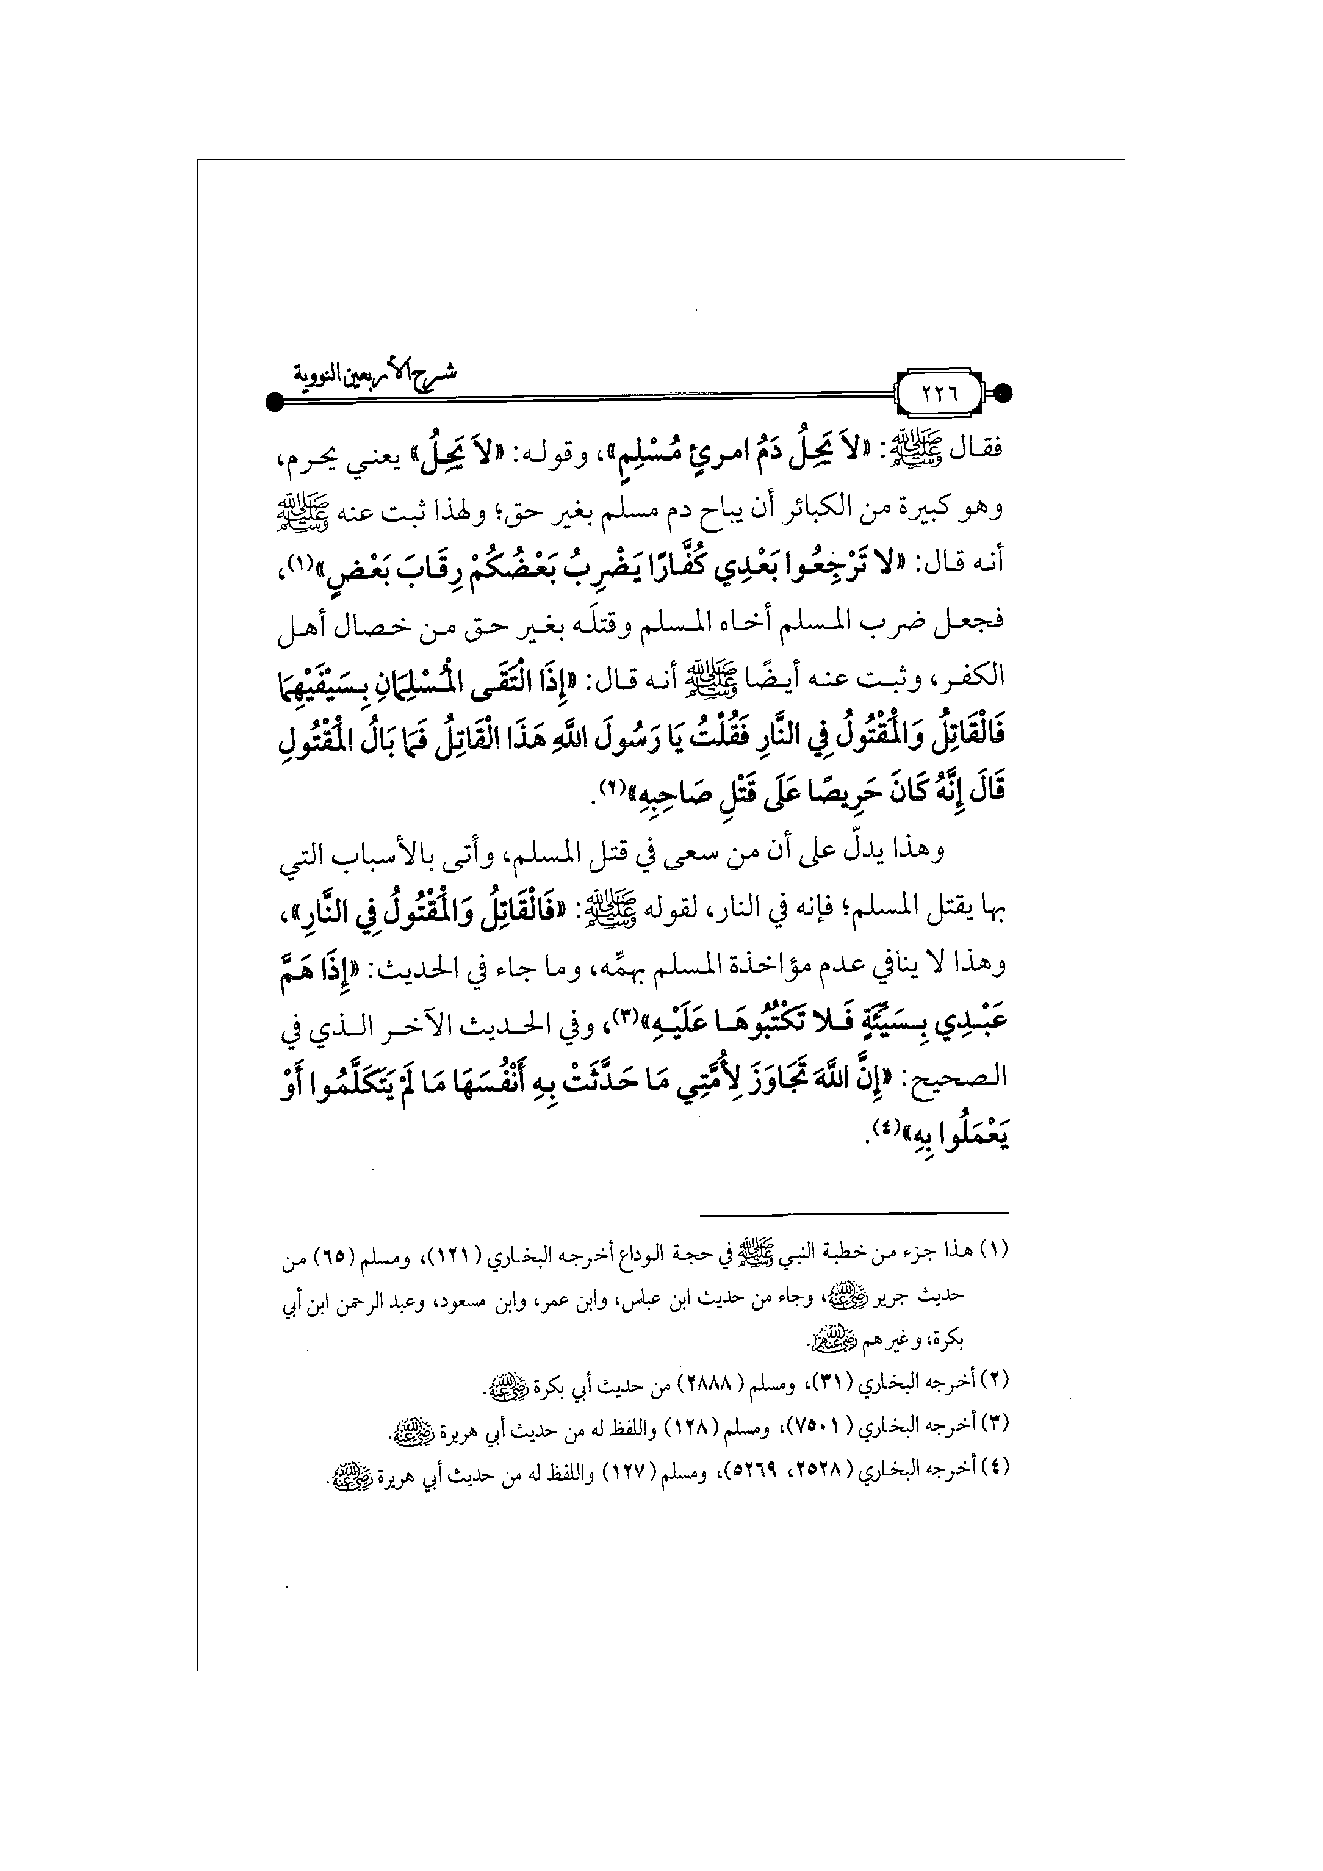 شرح الأربعين النووية
٢٢٦
فقال ﷺ: «لاَ يَحِلُّ دَمُ امرئٍ مُسْلِمٍ»، وقوله: «لاَ يَحِلُّ» يعني يحرم،
وهو كبيرة من الكبائر أن يباح دم مسلم بغير حق؛ ولهذا ثبت عنه ﷺ
أنه قال: «لا تَرْجِعُوا بَعْدِي كُفَّارًا يَضْرِبُ بَعْضُكُمْ رِقَابَ بَعْضٍ»(١)،
فجعل ضرب المسلم أخاه المسلم وقتلَه بغير حق من خصال أهل
الكفر، وثبت عنه أيضًا ﷺ أنه قال: «إِذَا الْتَقَى الْمُسْلِمَانِ بِسَيْفَيْهِمَا
فَالْقَاتِلُ وَالْمَقْتُولُ فِي النَّارِ فَقُلْتُ يَا رَسُولَ اللَّهِ هَذَا الْقَاتِلُ فَمَا بَالُ الْمَقْتُولِ
قَالَ إِنَّهُ كَانَ حَرِيصًا عَلَى قَتْلِ صَاحِبِهِ»(٢).
وهذا يدلّ على أن من سعى في قتل المسلم، وأتى بالأسباب التي
بها يقتل المسلم؛ فإنه في النار، لقوله ﷺ: «فَالْقَاتِلُ وَالْمَقْتُولُ فِي النَّارِ»،
وهذا لا ينافي عدم مؤاخذة المسلم بهمِّه، وما جاء في الحديث: «إِذَا هَمَّ
عَبْدِي بِسَيِّئَةٍ فَلا تَكْتُبُوهَا عَلَيْهِ»(٣)، وفي الحديث الآخر الذي في
الصحيح: «إِنَّ اللَّهَ تَجَاوَزَ لِأُمَّتِي مَا حَدَّثَتْ بِهِ أَنْفُسَهَا مَا لَمْ يَتَكَلَّمُوا أَوْ
يَعْمَلُوا بِهِ»(٤).
(١) هذا جزء من خطبة النبي ﷺ في حجة الوداع أخرجه البخاري (١٢١)، ومسلم (٦٥) من
حديث جرير رضي الله عنه، وجاء من حديث ابن عباس، وابن عمر، وابن مسعود، وعبد الرحمن ابن أبي
بكرة، وغيرهم رضي الله عنهم.
(٢) أخرجه البخاري (٣١)، ومسلم (٢٨٨٨) من حديث أبي بكرة رضي الله عنه.
(٣) أخرجه البخاري (٧٥٠١)، ومسلم (١٢٨) واللفظ له من حديث أبي هريرة رضي الله عنه.
(٤) أخرجه البخاري (٢٥٢٨، ٥٢٦٩)، ومسلم (١٢٧) واللفظ له من حديث أبي هريرة رضي الله عنه.